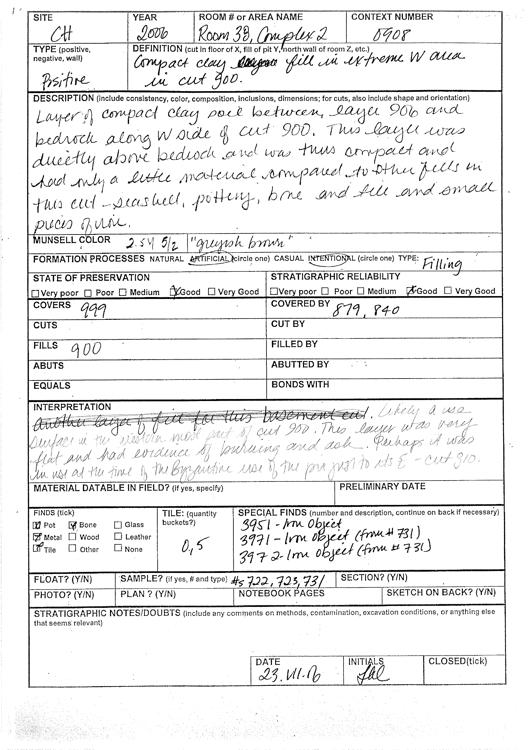 SITE YEAR ROOM # or AREA NAME CONTEXT NUMBER
CH 2006 Room 3B, Complex 2 0908
TYPE (positive, negative, wall) DEFINITION (cut in floor of X, fill of pit Y, north wall of room Z, etc.)
Positive Compact clay fill in extreme W area
in cut 900.
DESCRIPTION (include consistency, color, composition, inclusions, dimensions; for cuts, also include shape and orientation)
Layer of compact clay soil between layer 906 and
bedrock along W side of cut 900. This layer was
directly above bedrock and was thus compact and
had only a little material compared to other fills in
this cut - seashell, pottery, bone and tile and small
pieces of iron.
MUNSELL COLOR 2.5Y 5/2 "greyish brown"
FORMATION PROCESSES NATURAL ARTIFICIAL (circle one) CASUAL INTENTIONAL (circle one) TYPE: Filling
STATE OF PRESERVATION STRATIGRAPHIC RELIABILITY
Very poor Poor Medium Good Very Good Very poor Poor Medium Good Very Good
COVERS 999 COVERED BY 879, 840
CUTS CUT BY
FILLS 900 FILLED BY
ABUTS ABUTTED BY
EQUALS BONDS WITH
INTERPRETATION
Another layer of fill for this basement cut. Likely a use
surface in the western most part of cut 900. This layer was very
flat and had evidence of burning and ash. Perhaps it was
in use at the time of the Byzantine use of the just to its E - cut 910.
MATERIAL DATABLE IN FIELD? (if yes, specify) PRELIMINARY DATE
FINDS (tick) TILE: (quantity buckets?) SPECIAL FINDS (number and description, continue on back if necessary)
Pot Bone Glass 3951 - Iron Object
Metal Wood Leather 0,5 3971 - Iron Object (from # 731)
Tile Other None 3972 - Iron object (from # 731)
FLOAT? (Y/N) SAMPLE? (if yes, # and type) #s 722, 723, 731 SECTION? (Y/N)
PHOTO? (Y/N) PLAN ? (Y/N) NOTEBOOK PAGES SKETCH ON BACK? (Y/N)
STRATIGRAPHIC NOTES/DOUBTS (include any comments on methods, contamination, excavation conditions, or anything else
that seems relevant)
DATE INITIALS CLOSED(tick)
23.VII.06